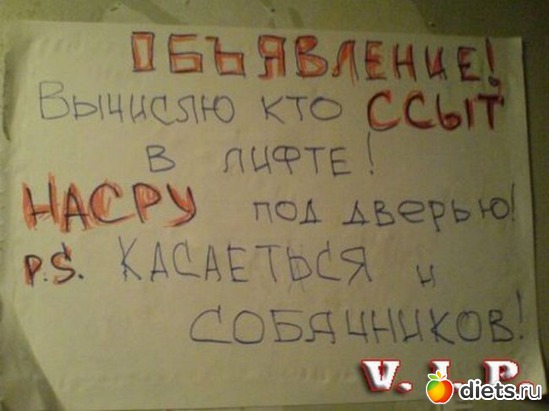 ОБЪЯВЛЕНИЕ!
ВЫЧИСЛЮ КТО ССЫТ
В ЛИФТЕ!
НАСРУ ПОД ДВЕРЬЮ!
P.S. КАСАЕТЬСЯ И
СОБАЧНИКОВ!
V.I.P.
diets.ru